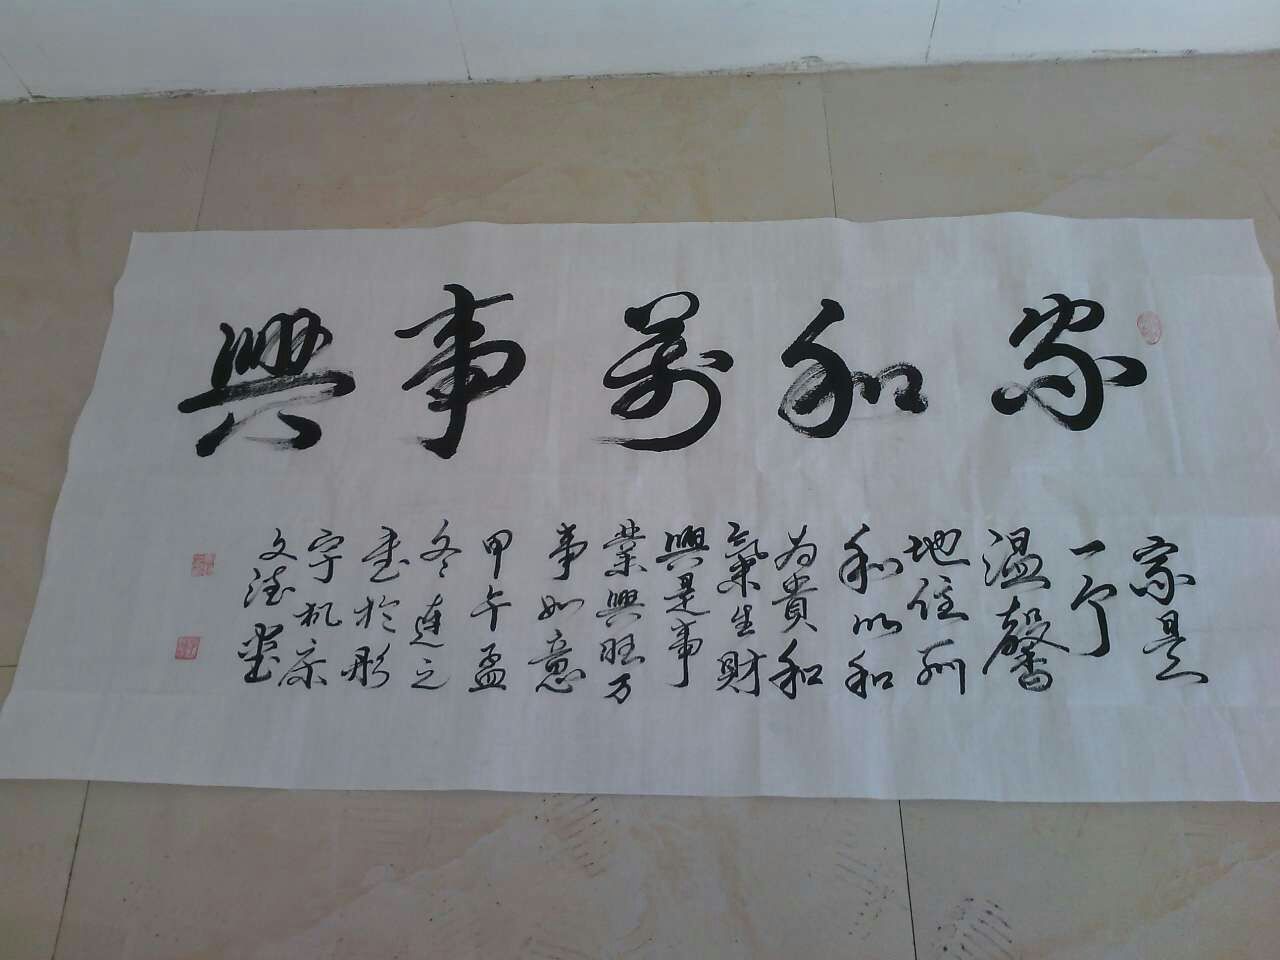 家和萬事興
家是
一个
温馨
地住所
和以和
為貴和
氣生財
興是事
業興旺万
事如意
甲午孟
冬連之
書於彤
宇机京
文法堂